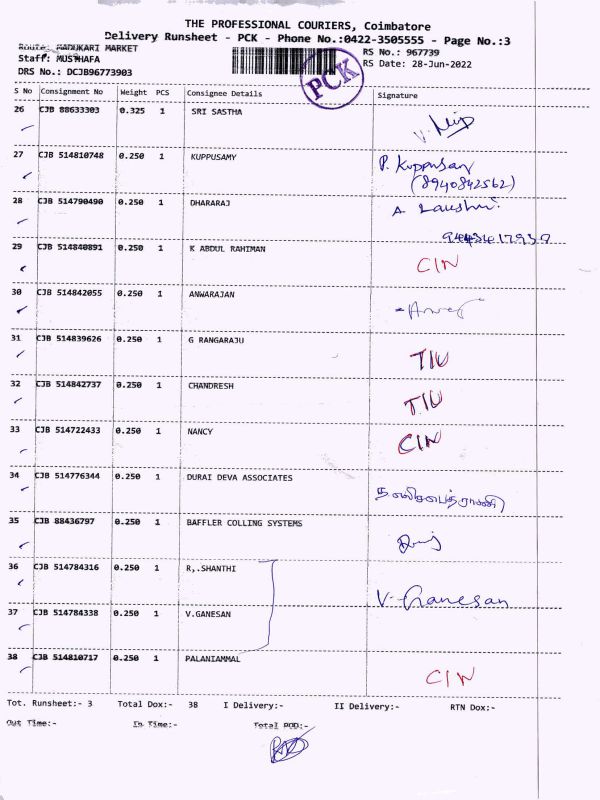 THE PROFESSIONAL COURIERS, Coimbatore
Delivery Runsheet - PCK - Phone No.:0422-3505555 - Page No.:3
Route: MADUKARI MARKET
RS No.: 967739
Staff: MUSTHAFA
RS Date: 28-Jun-2022
DRS No.: DCJB96773903
PCK
S No Consignment No Weight PCS Consignee Details Signature
26 CJB 88633303 0.325 1 SRI SASTHA
27 CJB 514810748 0.250 1 KUPPUSAMY P. Kuppusamy
(8940842562)
28 CJB 514790490 0.250 1 DHARARAJ A
29 CJB 514840891 0.250 1 K ABDUL RAHIMAN CIN
30 CJB 514842055 0.250 1 ANWARAJAN
31 CJB 514839626 0.250 1 G RANGARAJU TIU
32 CJB 514842737 0.250 1 CHANDRESH T.IU
33 CJB 514722433 0.250 1 NANCY CIN
34 CJB 514776344 0.250 1 DURAI DEVA ASSOCIATES
35 CJB 88436797 0.250 1 BAFFLER COLLING SYSTEMS
36 CJB 514784316 0.250 1 R,.SHANTHI
V. Ganesan
37 CJB 514784338 0.250 1 V.GANESAN
38 CJB 514810717 0.250 1 PALANIAMMAL CIN
Tot. Runsheet:- 3 Total Dox:- 38 I Delivery:- II Delivery:- RTN Dox:-
Out Time:- In Time:- Total POD:-